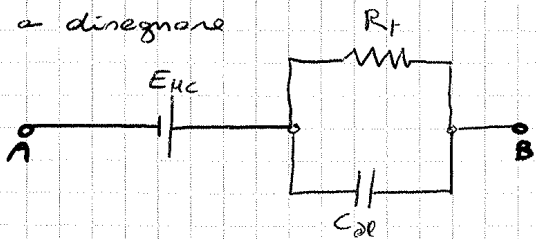 a disegnare
Rt
EHC
A
B
Cdl